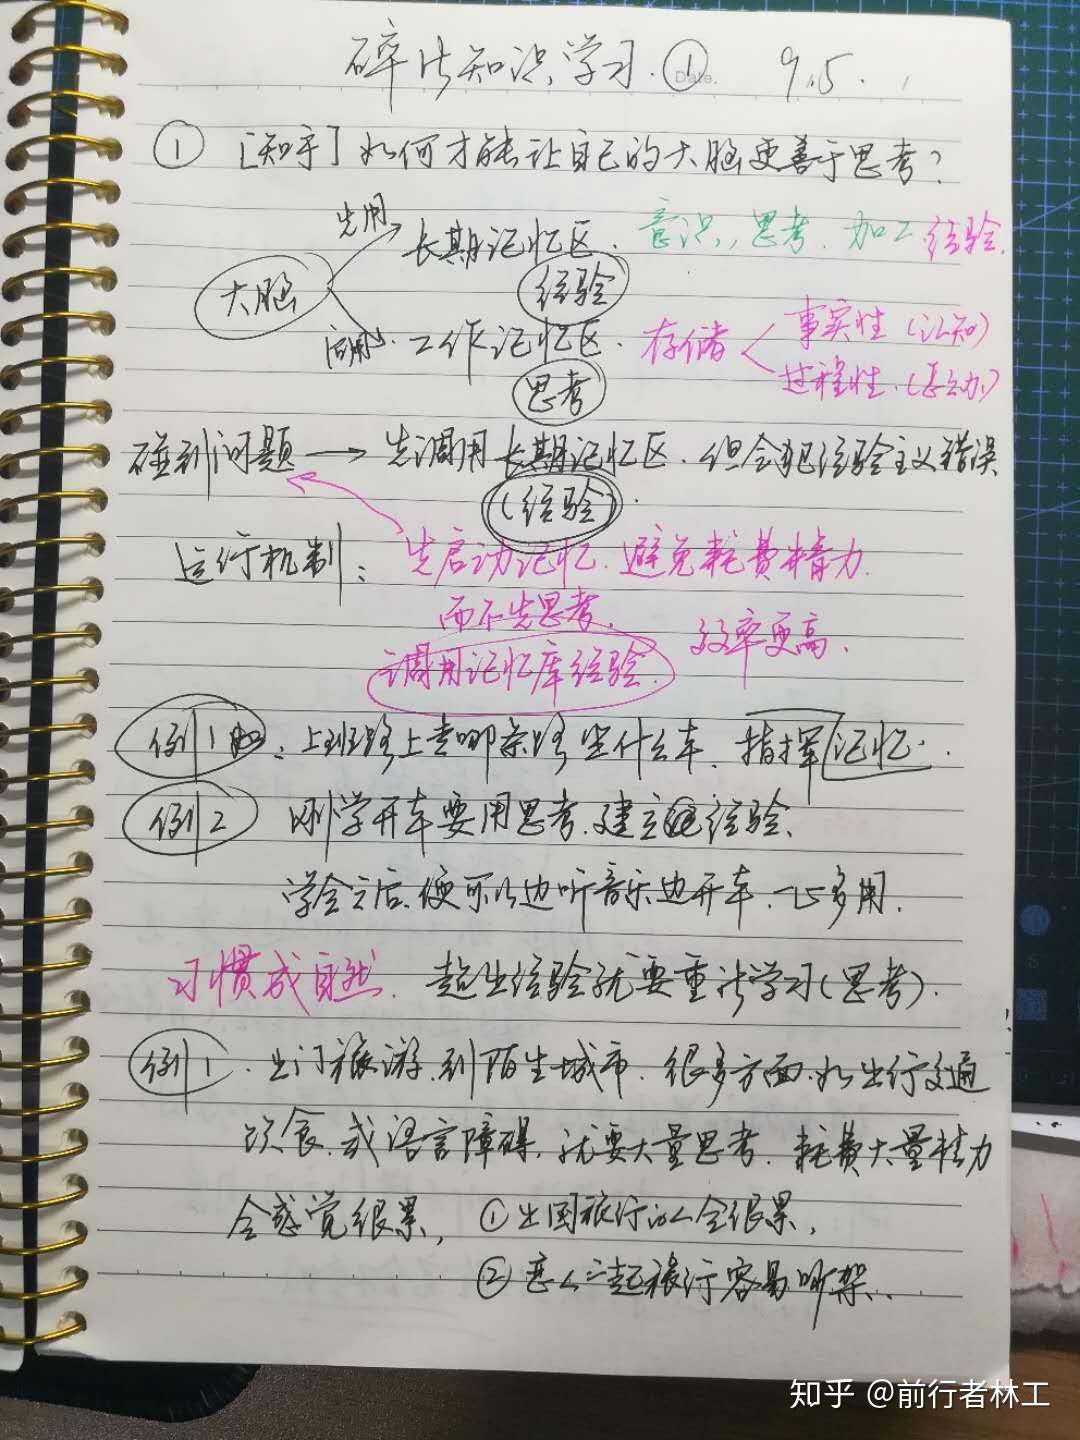 碎片知识学习. ① Date. 9.5.
① [知乎] 如何才能让自己的大脑更善于思考?
先用 长期记忆区. 意识, 思考. 加工 经验.
大脑 经验
工作记忆区. 存储 事实性 (认知)
思考 过程性. (怎么办)
碰到问题 → 先调用长期记忆区. 但会犯经验主义错误
(经验)
运行机制: 先启动记忆. 避免耗费精力.
而不先思考. 效率更高.
调用记忆库经验.
例1: 上班路上走哪条路坐什么车. 指挥记忆.
例2 刚学开车要用思考. 建立经验.
学会之后, 便可以边听音乐边开车. 一心多用.
习惯成自然. 超出经验就要重新学习(思考).
例1. 出门旅游. 到陌生城市. 很多方面. 如出行交通
饮食. 或语言障碍. 就要大量思考. 耗费大量精力
会感觉很累, ①出国旅行的人会很累,
②恋人一起旅行容易吵架.
知乎 @前行者林工